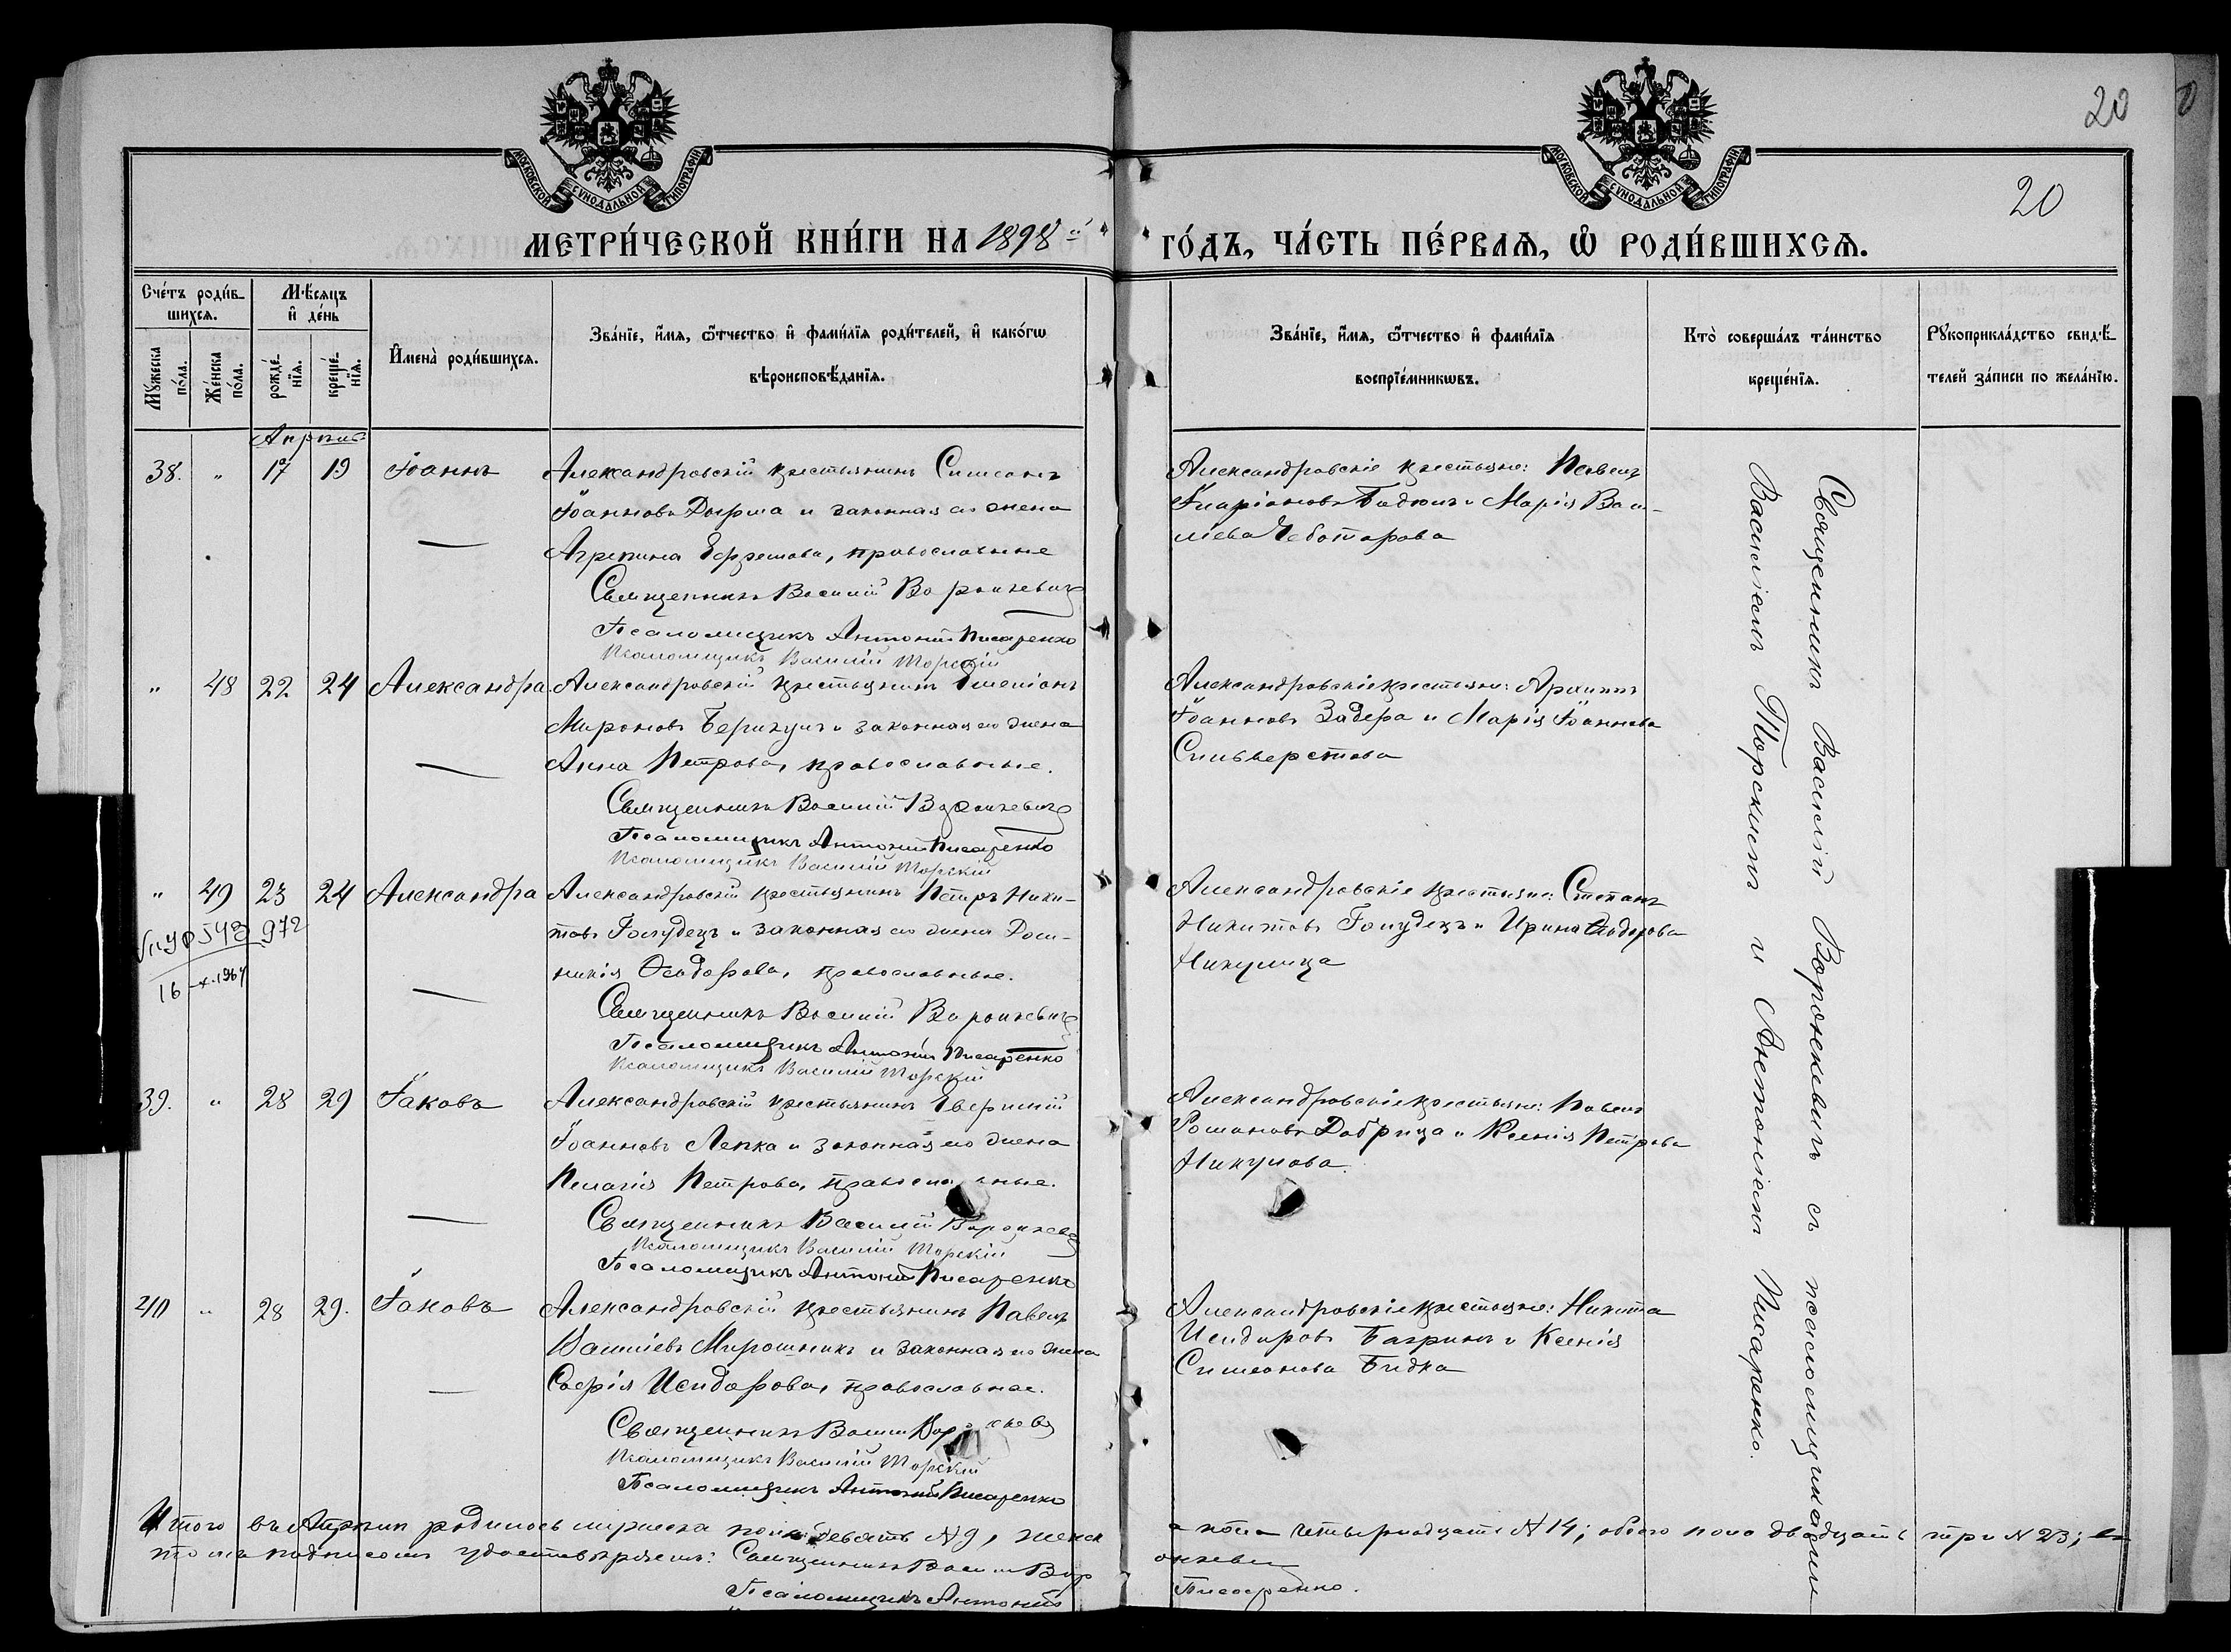 20
20
МОСКОВСКОЙ СѴНОДАЛЬНОЙ ТИПОГРАФІИ
МОСКОВСКОЙ СѴНОДАЛЬНОЙ ТИПОГРАФІИ
МЕТРИ́ЧЕСКОЙ КНИ́ГИ НА 1898й
ГО́ДЪ, ЧА́СТЬ ПЕ́РВАѦ, Ѡ҆ РОДИ́ВШИХСѦ.
Сче́тъ роди́в-
шихсѧ.
Мѣ́сѧцъ
и҆ де́нь
Мꙋ́жеска по́ла.
Же́нска по́ла.
рожде́-нїѧ.
креще́-нїѧ.
И҆мена̀ роди́вшихсѧ.
Зва́нїе, и҆́мѧ, ѻ҆́тчество и҆ фами́лїѧ роди́телей, и҆ како́гѡ
вѣроисповѣ́данїѧ.
Зва́нїе, и҆́мѧ, ѻ҆́тчество и҆ фами́лїѧ
воспрїе́мникѡвъ.
Кто̀ соверша́лъ та́инство
креще́нїѧ.
Рꙋкоприкла́дство свидѣ́-
телей за́писи по жела́нїю.
Апрѣль
38. " 17 19 Іоаннъ
Александровскій крестьянинъ Симеонъ
Іоанновъ Дырма и законная его жена
Агрепина Ефремова, православные
Священникъ Василій Воронкевичъ
Псаломщикъ Антоній Писаренко
Псаломщикъ Василій Торскій
Александровскіе крестьяне: Павелъ
Иларіоновъ Бадюлъ и Марія Васи-
ліева Чеботарова
" 48 22 24 Александра
Александровскій крестьянинъ Емеліанъ
Мироновъ Берикулъ и законная его жена
Анна Петрова, православные.
Священникъ Василій Воронкевичъ
Псаломщикъ Антоній Писаренко
Псаломщикъ Василій Торскій
Александровскіе крестьяне: Архипъ
Іоанновъ Задера и Марія Іоаннова
Сильверстова
" 49 23 24 Александра
972
16-X-1967
Александровскій крестьянинъ Петръ Ники-
товъ Голудецъ и законная его жена Дом-
никія Ѳеодорова, православные.
Священникъ Василій Воронкевичъ
Псаломщикъ Антоній Писаренко
Псаломщикъ Василій Торскій
Александровскіе крестьяне: Степанъ
Никитовъ Голудецъ и Ирина Ѳеодорова
Никулица
39. " 28 29 Іаковъ
Александровскій крестьянинъ
Іоанновъ Лепка и законная его жена
Пелагія Петрова, православные.
Священникъ Василій Воронкевичъ
Псаломщикъ Василій Торскій
Псаломщикъ Антоній Писаренко
Александровскіе крестьяне: Павелъ
Романовъ Добрица и Ксенія Петрова
Никулова.
40 " 28 29. Іаковъ
Александровскій крестьянинъ Павелъ
Василіевъ Мирошникъ и законная его жена
Исидорова, православные.
Священникъ Василій
Псаломщикъ Василій Торскій
Псаломщикъ Антоній Писаренко
Александровскіе крестьяне: Никита
Исидоровъ Багринъ и Ксенія
Симеонова Бидка
Священникъ Василій Воронкевичъ съ псаломщиками
Василіемъ Торскимъ и Антоніемъ Писаренко.
Итого въ Апрѣлѣ родилось мужеска пола девять № 9, женск
а пола четырнадцать № 14; обоего пола двадцать три № 23; въ
томъ подписомъ удостовѣряемъ: Священникъ Василій Вор
онкевич
Псаломщикъ Антоній
Писаренко.